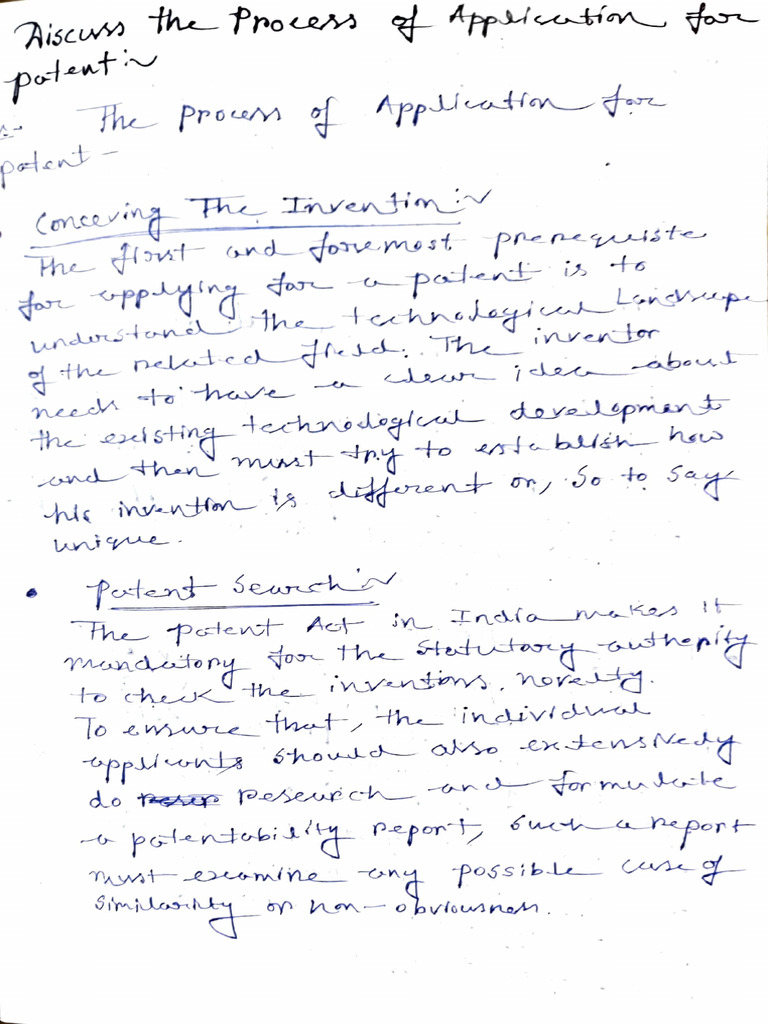 Discuss the Process of Application for
patent :~
The process of Application for
patent -
Conceving The Invention :~
The first and foremost prerequiste
for applying for a patent is to
understand the technological Landscape
of the related field. The inventor
needs to have a clear idea about
the existing technological development
and then must try to establish how
his invention is different or, so to say,
unique.
• Patent Search :~
The patent Act in India makes it
mandatory for the statutory authority
to check the inventions, novelty.
To ensure that, the individual
applicants should also extensively
do research and formulate
a patentability report, such a report
must examine any possible case of
similarity or non-obviousness.